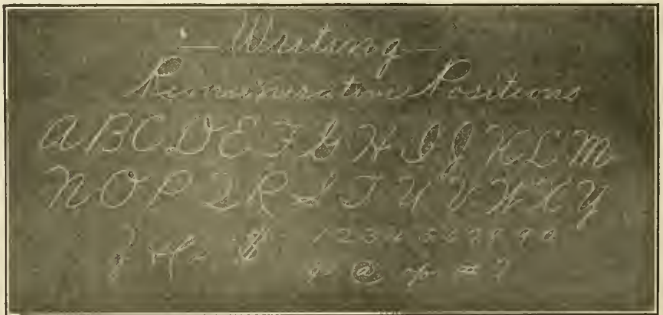 — Writing —
Remunerative Positions
A B C D E F G H I J K L M
N O P Q R S T U V W X Y
Z & $ 1 2 3 4 5 6 7 8 9 0
@ # ?